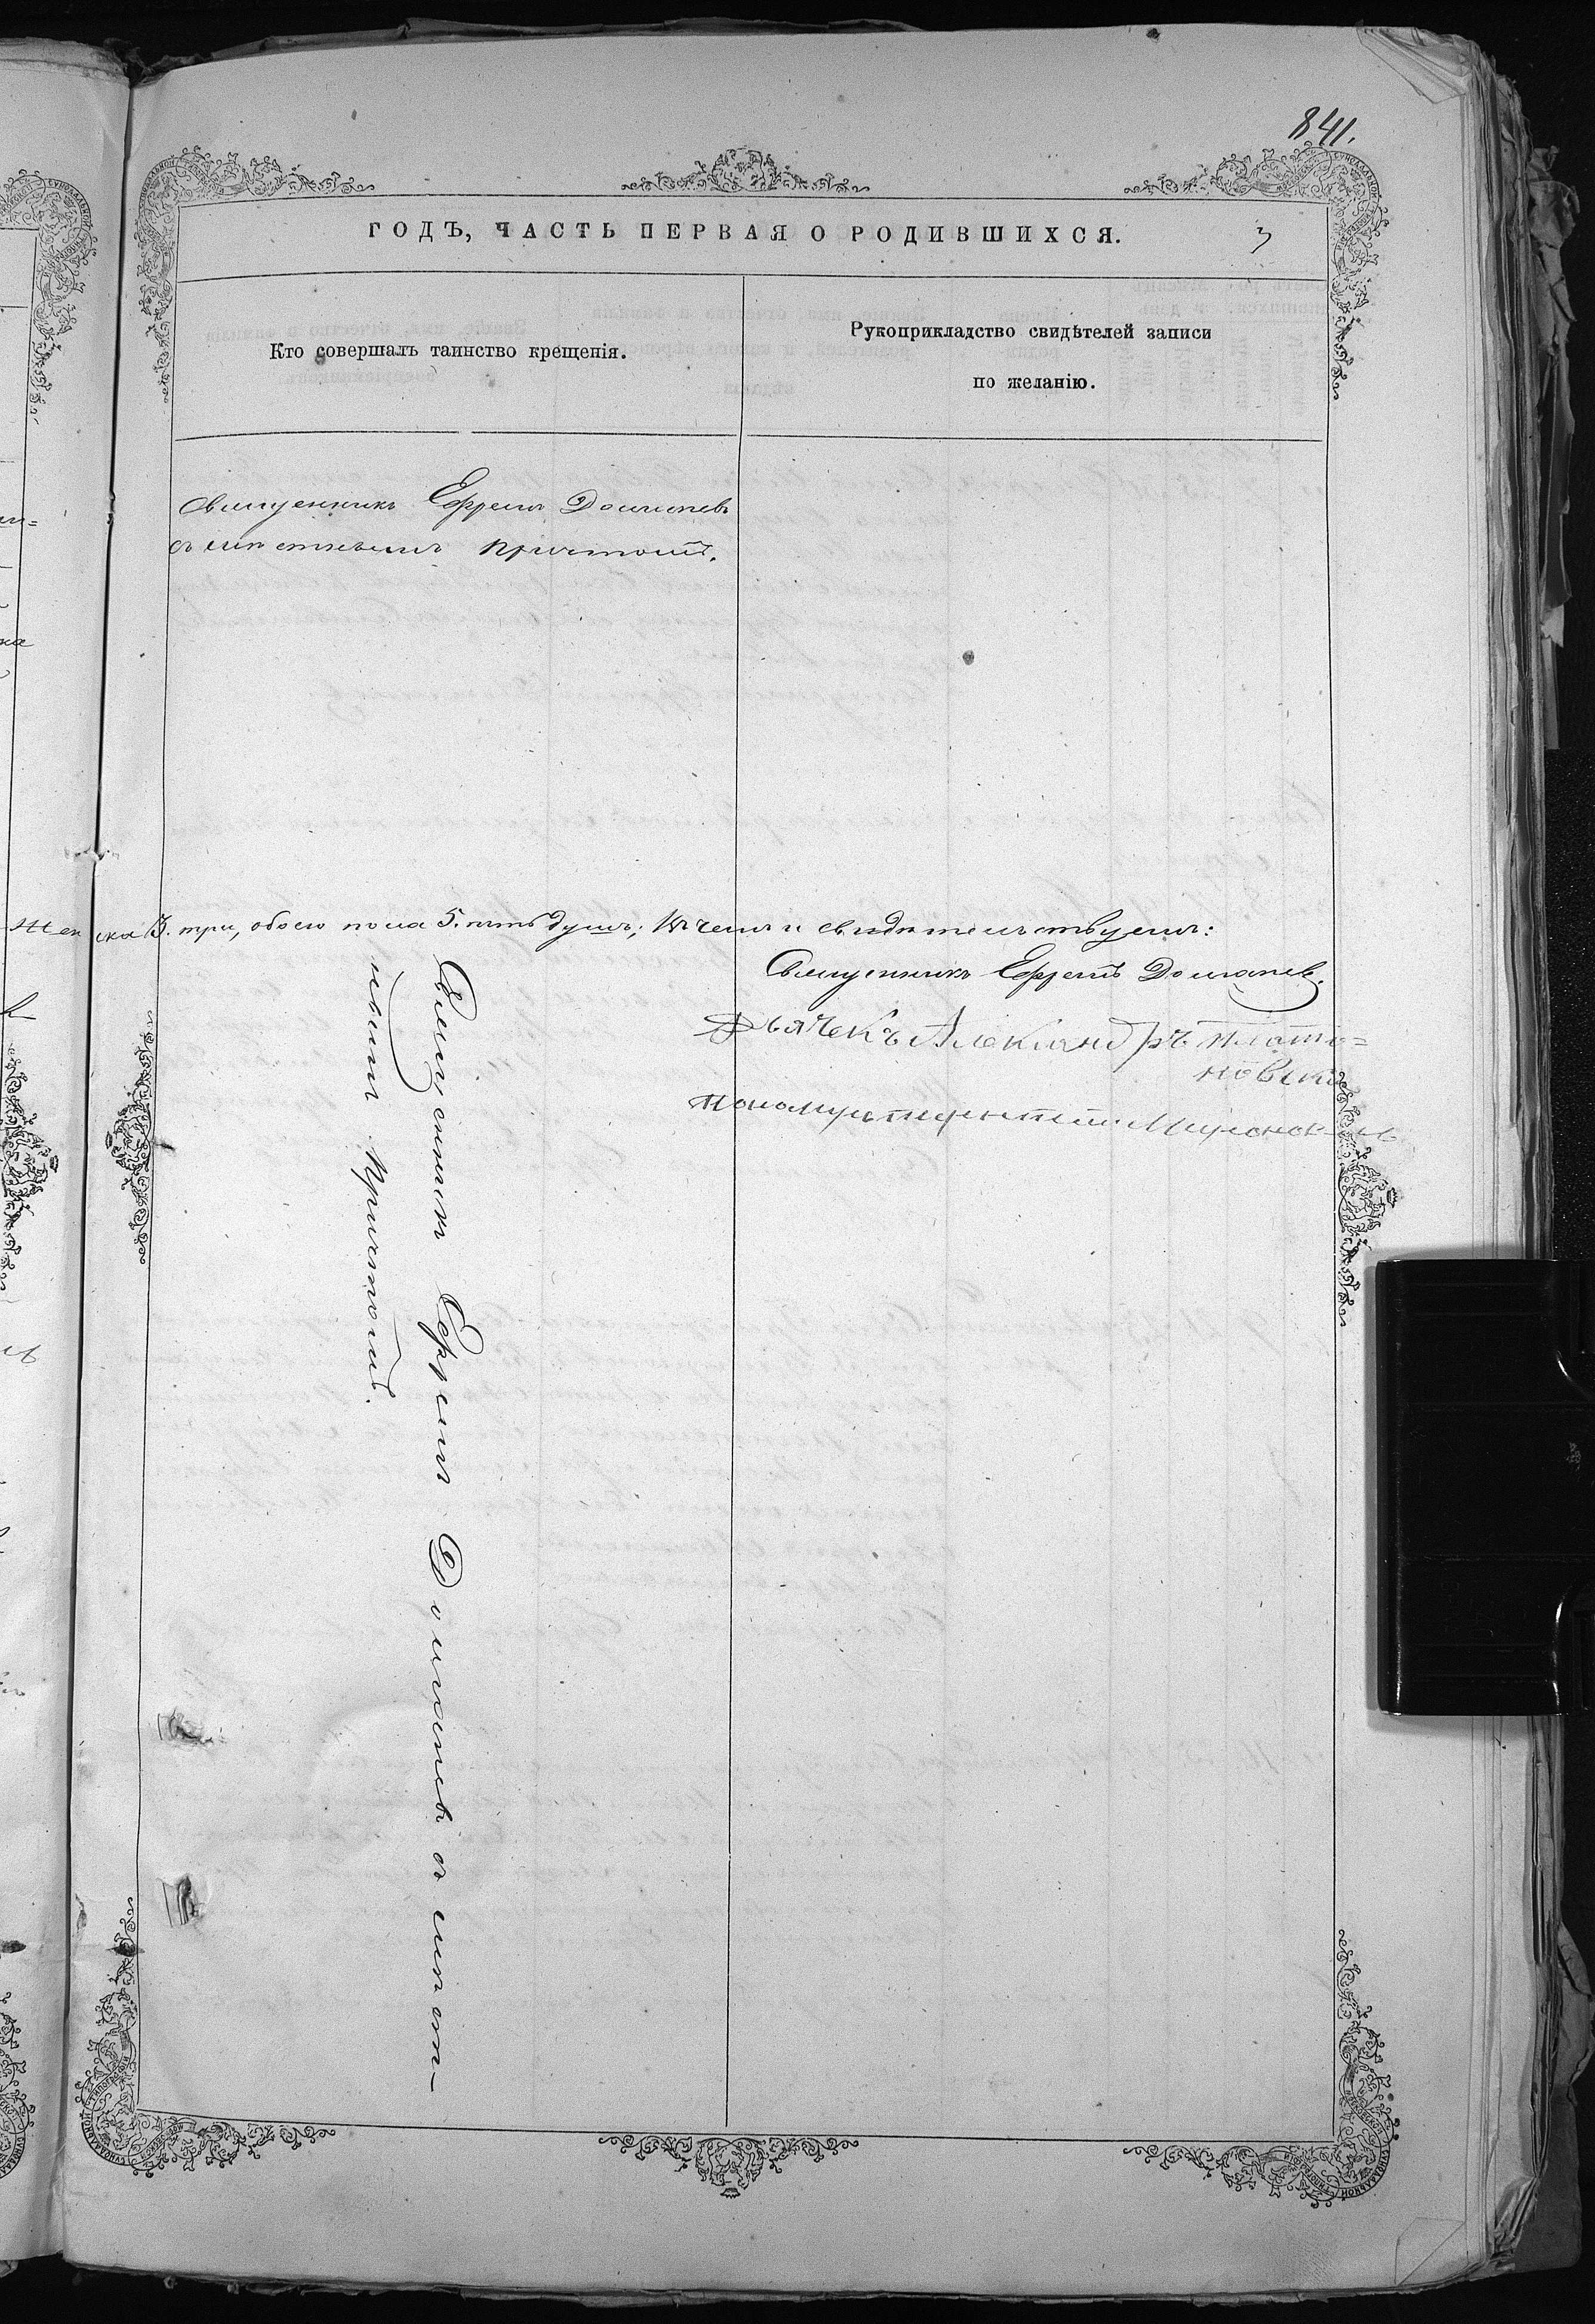 841.
ГОДЪ, ЧАСТЬ ПЕРВАЯ О РОДИВШИХСЯ. 3
Кто совершалъ таинство крещенія.
Рукоприкладство свидѣтелей записи
по желанію.
Священникъ Ефремъ Доманевъ
съ мѣстнымъ причтомъ.
женска 3. три, обоего пола 5. пять душъ; въ чемъ и свидѣтельствуемъ:
Священникъ Ефремъ Доманевъ.
Дьячекъ Александръ Плато=
новскі
Пономарь
Священникъ Ефремъ Доманевъ съ мѣст-
нымъ причтомъ.